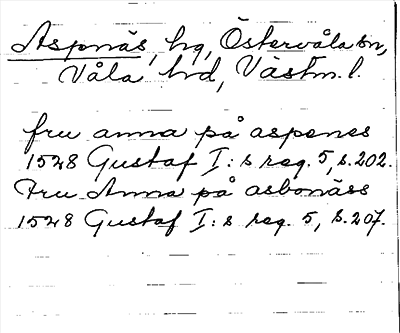 Aspnäs, hg, Östervåla sn,
Våla hd, Västm. l.
fru anna på aspenes
1528 Gustaf I:s reg. 5, s. 202.
Fru Anna på asbonäss
1528 Gustaf I:s reg. 5, s. 207.